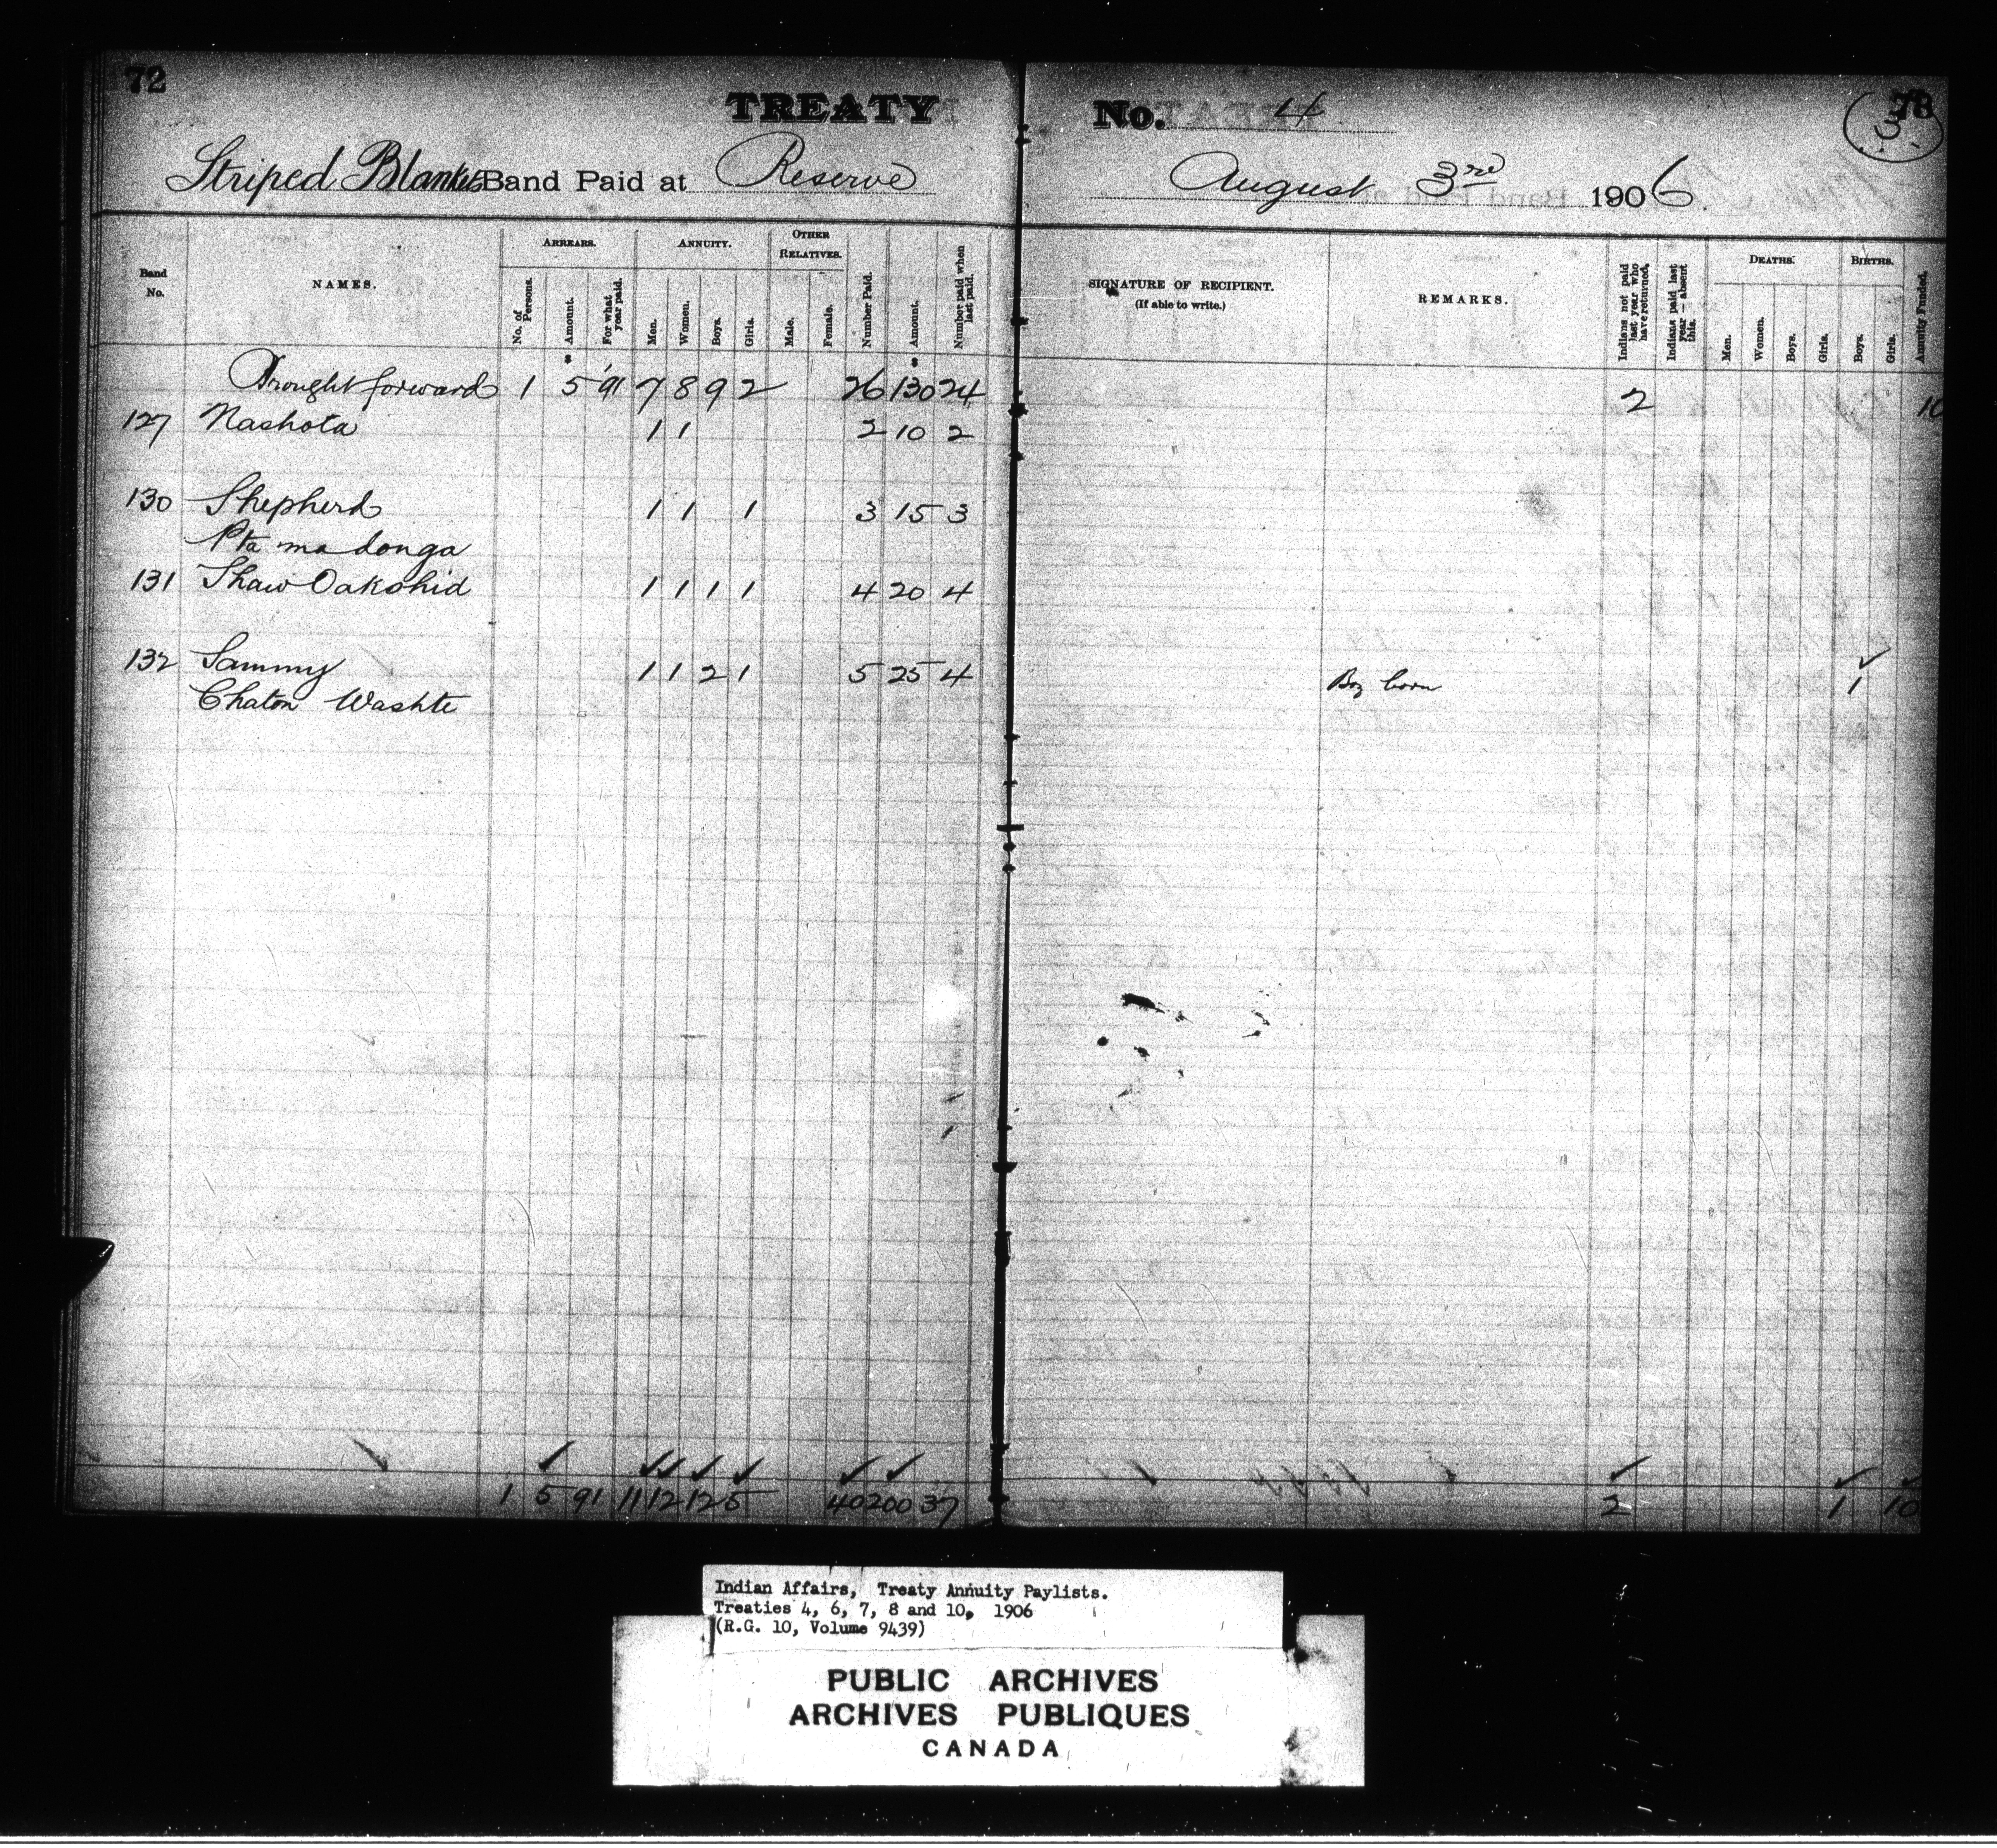 72
TREATY No. 4
73
(3)
Striped Blankets Band Paid at Reserve August 3rd 1906.
Band No.
NAMES.
ARREARS.
No. of Persons.
Amount.
For what year paid.
ANNUITY.
Men.
Women.
Boys.
Girls.
OTHER RELATIVES.
Male.
Female.
Number Paid.
Amount.
Number paid when last paid.
SIGNATURE OF RECIPIENT.
(If able to write.)
REMARKS.
Indians not paid last year who have returned.
Indians paid last year – absent this.
DEATHS.
Men.
Women.
Boys.
Girls.
BIRTHS.
Boys.
Girls.
Annuity Funded.
Brought forward 1 5 '91 7 8 9 2 26 130 24 2 10
127 Nashota 1 1 2 10 2
130 Shepherd 1 1 1 3 15 3
Pta ma donga
131 Shaw Oakshid 1 1 1 1 4 20 4
132 Sammy 1 1 2 1 5 25 4 Boy born 1
Chaton Washte
1 5 91 11 12 12 5 40 200 37 2 1 10
Indian Affairs, Treaty Annuity Paylists.
Treaties 4, 6, 7, 8 and 10, 1906
(R.G. 10, Volume 9439)
PUBLIC ARCHIVES
ARCHIVES PUBLIQUES
CANADA